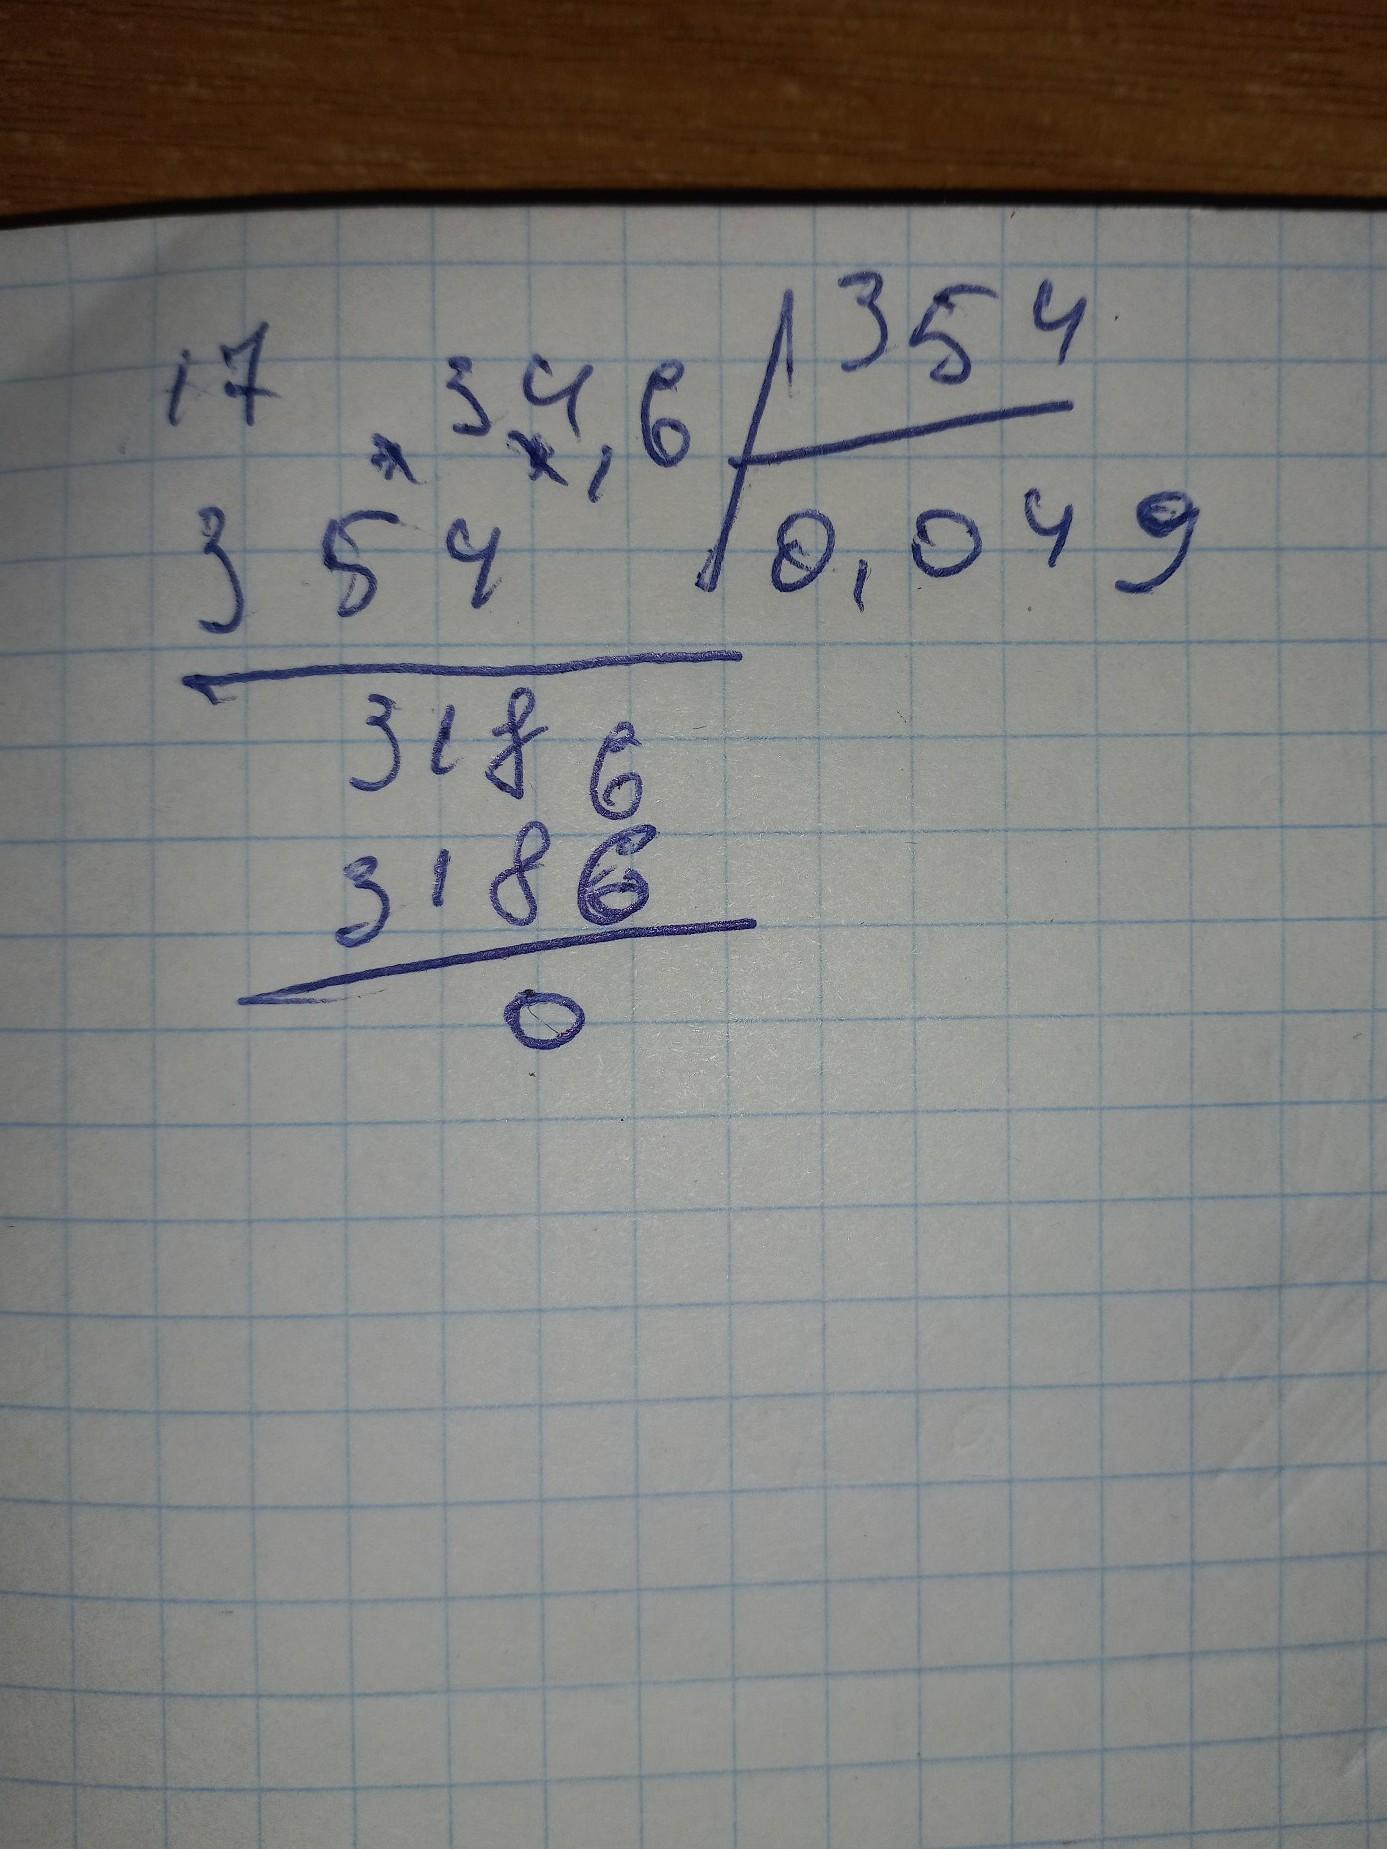 17 34,6 354
354 0,049
3186
3186
0